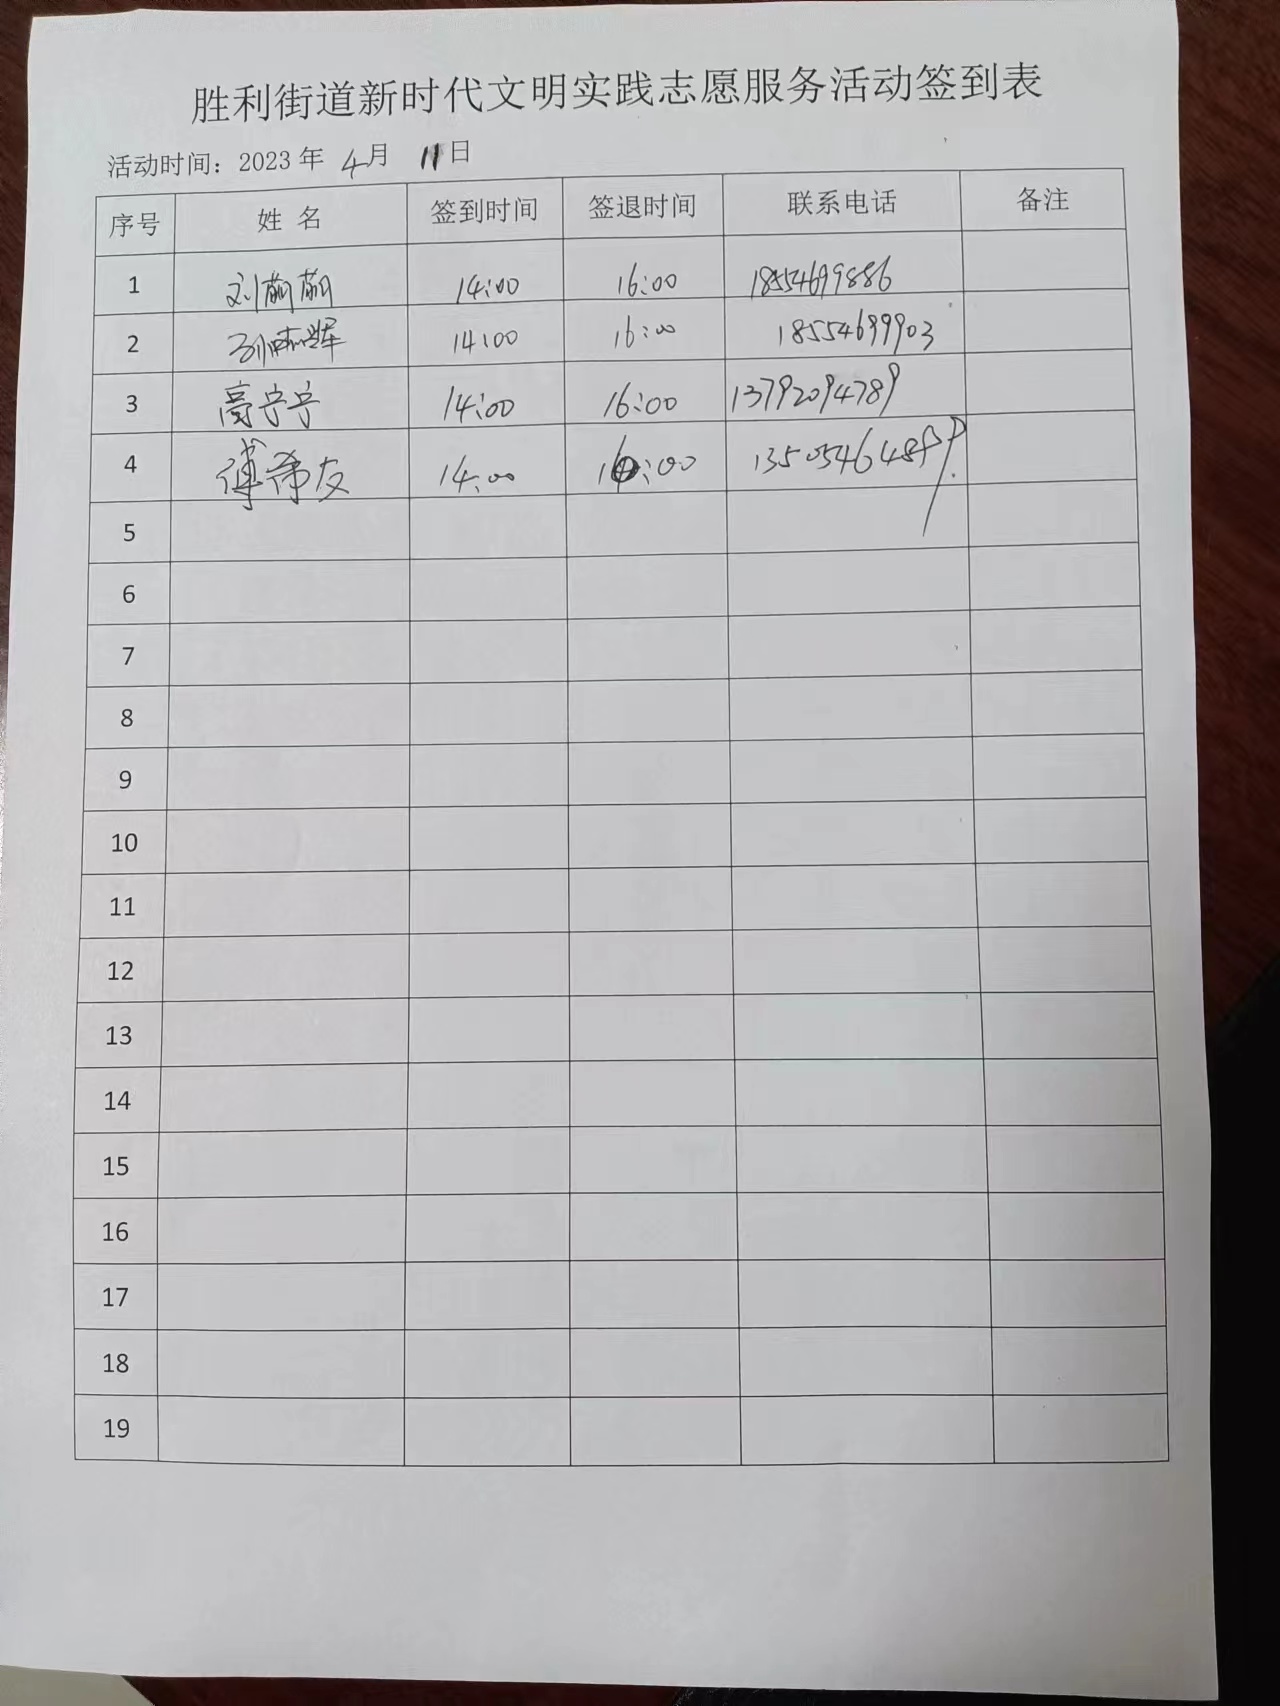 胜利街道新时代文明实践志愿服务活动签到表
活动时间：2023 年 4月 11日
序号 姓 名 签到时间 签退时间 联系电话 备注
1 刘萌萌 14:00 16:00 18554699886
2 14:00 16:00 18554699903
3 高宁宁 14:00 16:00 13792094789
4 傅希友 14:00 16:00
5
6
7
8
9
10
11
12
13
14
15
16
17
18
19